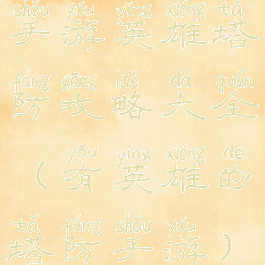 shǒu yóu yīng xióng tǎ
手游英雄塔
fáng gōng lüè dà quán
防攻略大全
yǒu yīng xióng de
(有英雄的
tǎ fáng shǒu yóu
塔防手游)